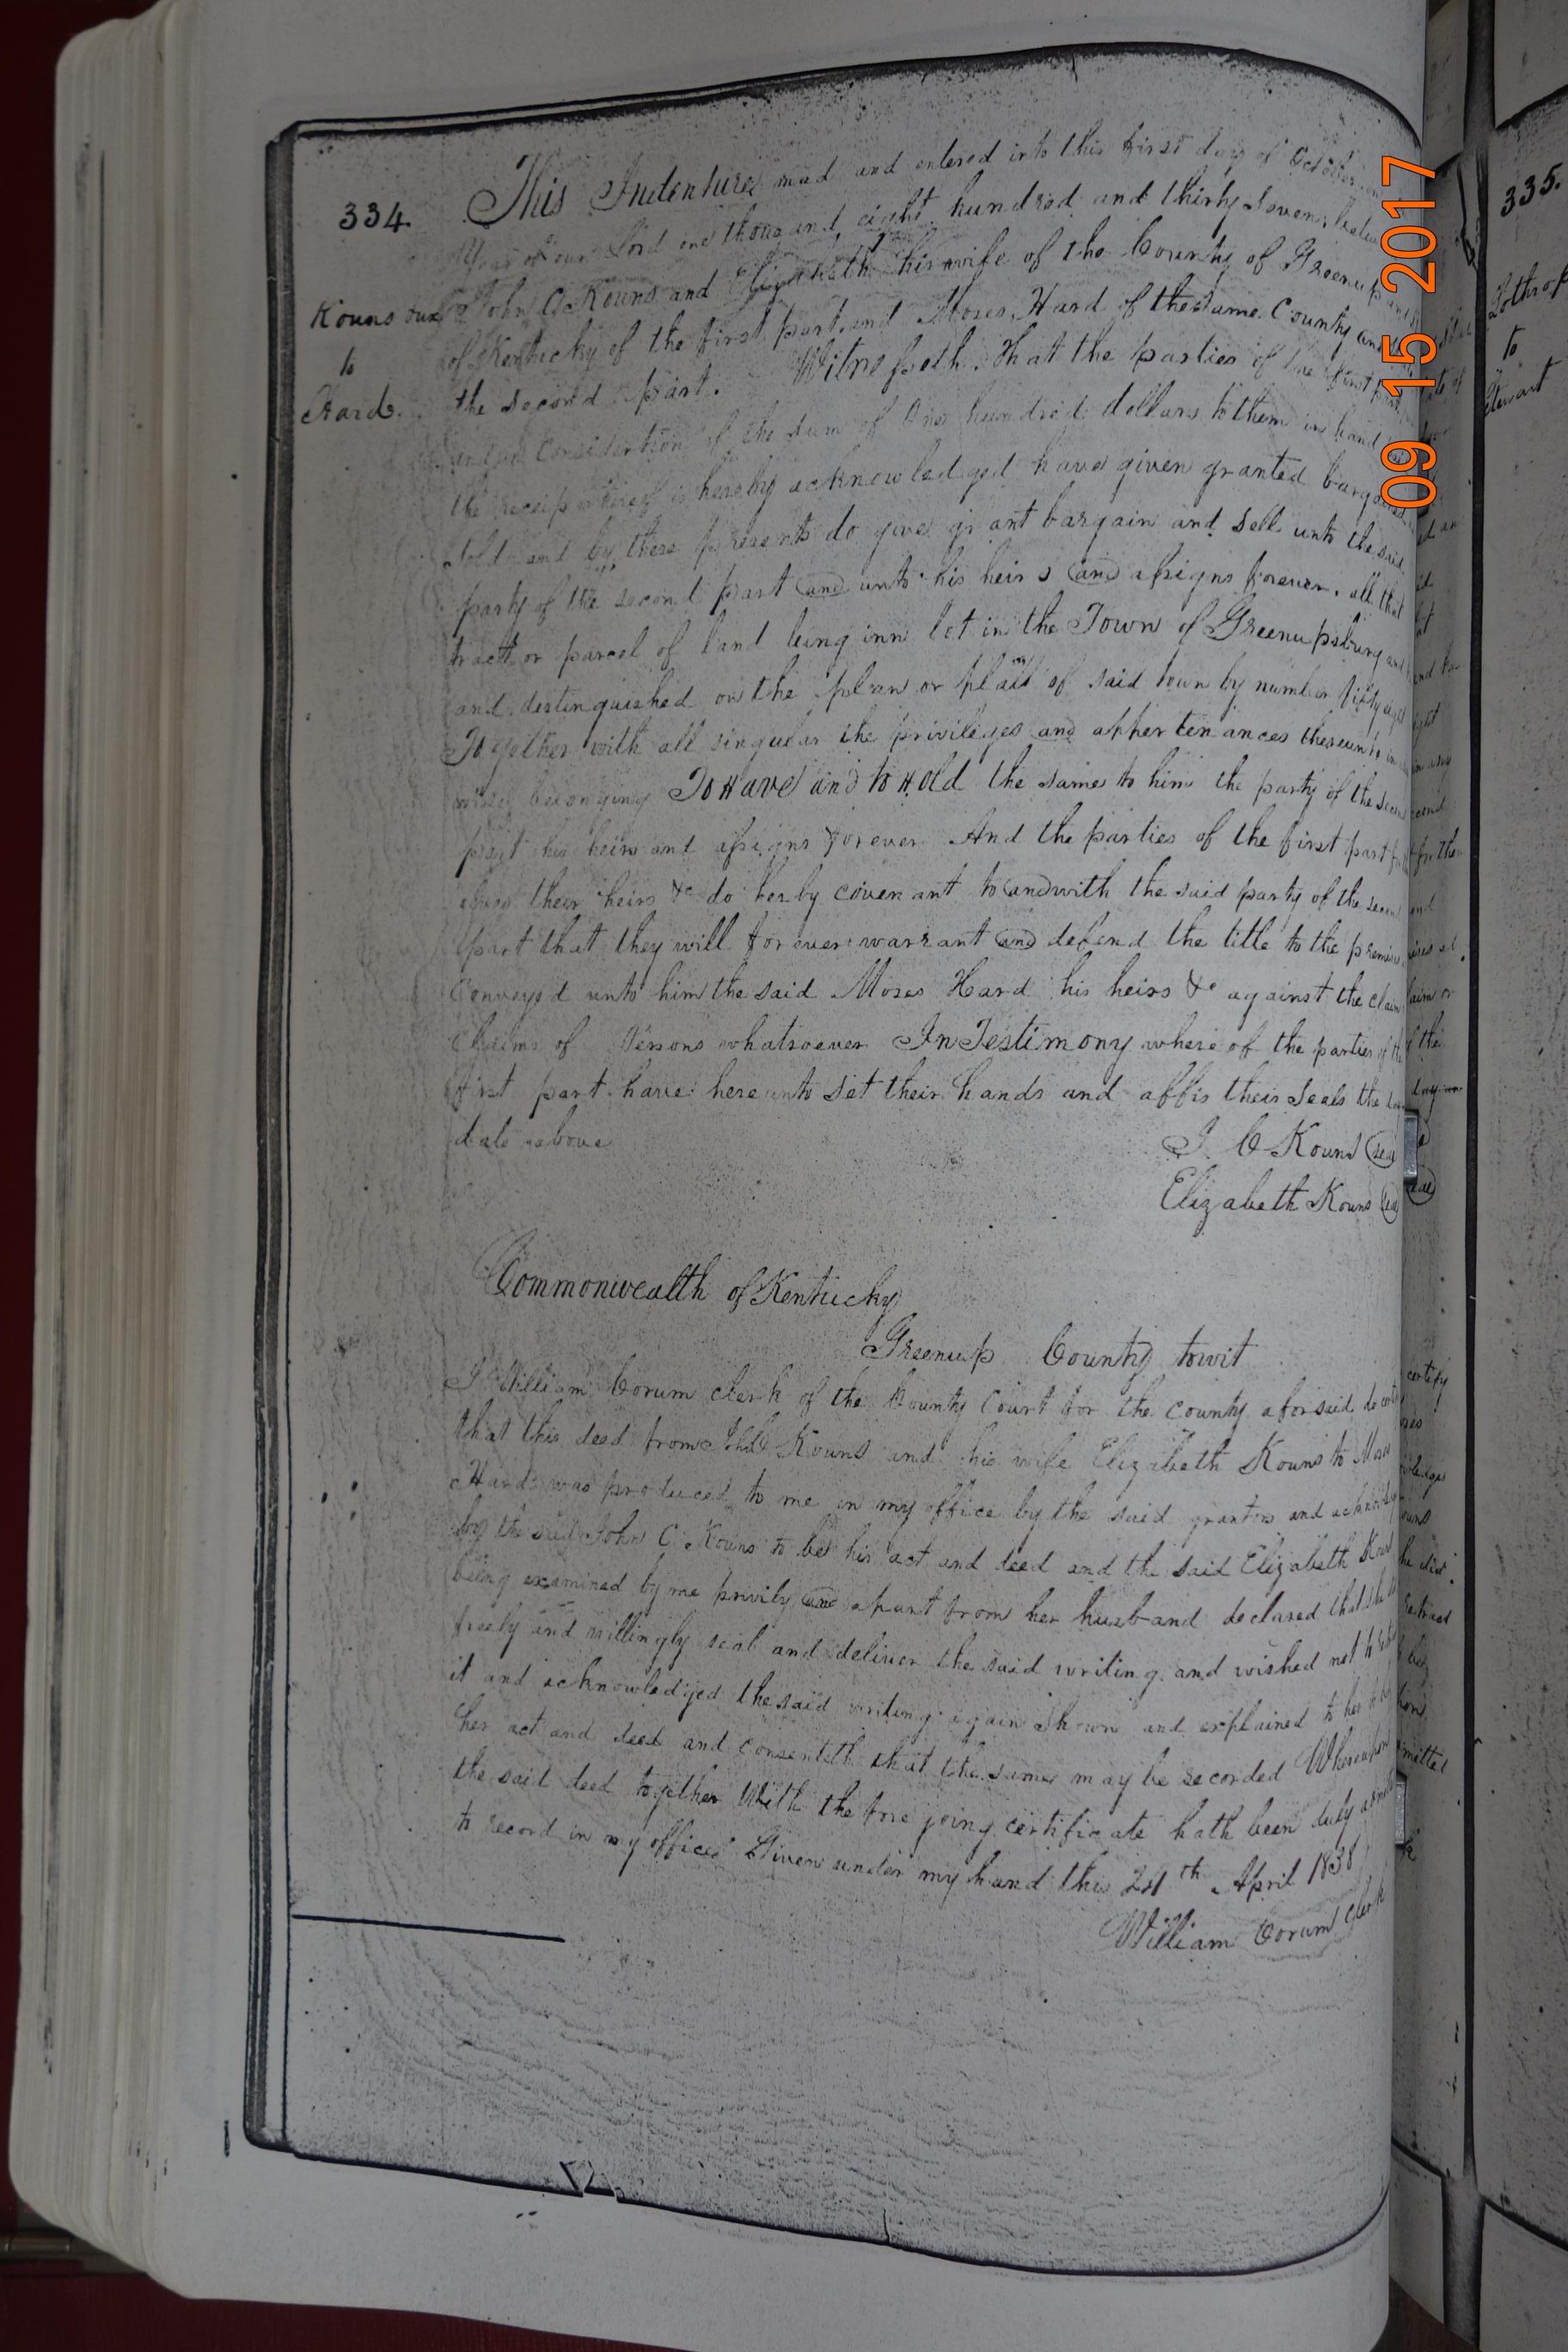 334.
Kouns &ux
to
Hard.
This Indenture mad and entered into this first day of October
Year of our Lord one thousand, eight hundred and thirty Seven,
John C Kouns and Elizabeth his wife of the County of Greenup and
of Kentucky of the first part, and Moses Hard of the same County and
the second part. Witnesseth. That the parties of the first part
and in Consideration of the sum of One hundred dollars to them in hand
the receip whereof is hereby acknowledged have given granted bargained
Sold and by these presents do give grant bargain and Sell unto the said
party of the second part and unto his heirs and assigns forever. all that
tract or parcel of land being inn lot in the Town of Greenupsburg and
and distinguished on the plan or platt of said town by number fifty eight
Together with all singular the privileges and appertenances thereunto in
wise belonging To Have and to Hold the same to him the party of the second
part his heirs and assigns forever And the parties of the first part for them
their heirs &c do herby covenant to and with the said party of the second
part that they will forever warrant and defend the title to the premises
Conveyed unto him the said Moses Hard his heirs &c against the claim or
Claims of Persons whatsoever In Testimony where of the parties of the
first part have hereunto set their hands and affis their Seals the day
date above
J. C Kouns seal
Elizabeth Kouns seal
Commonwealth of Kentucky
Greenup County towit
I William Corum clerk of the County Court for the county aforsaid do certify
that this deed from John C Kouns and his wife Elizabeth Kouns to Moses
Hard was produced to me in my office by the said grantors and acknowledged
by the said John C. Kouns to be his act and deed and the said Elizabeth Kouns
being examined by me privily and apart from her husband declared that she did
freely and willingly seal and deliver the said writing and wished not to retract
it and acknowledged the said writing again shown and explained to her to be
her act and deed and consenteth that the same may be recorded Whereupon
the said deed together With the fore going certificate hath been duly admitted
to record in my office Given under my hand this 24th April 1838
William Corum Clerk
335.
Lothrop
to
Stewart
09 15 2017